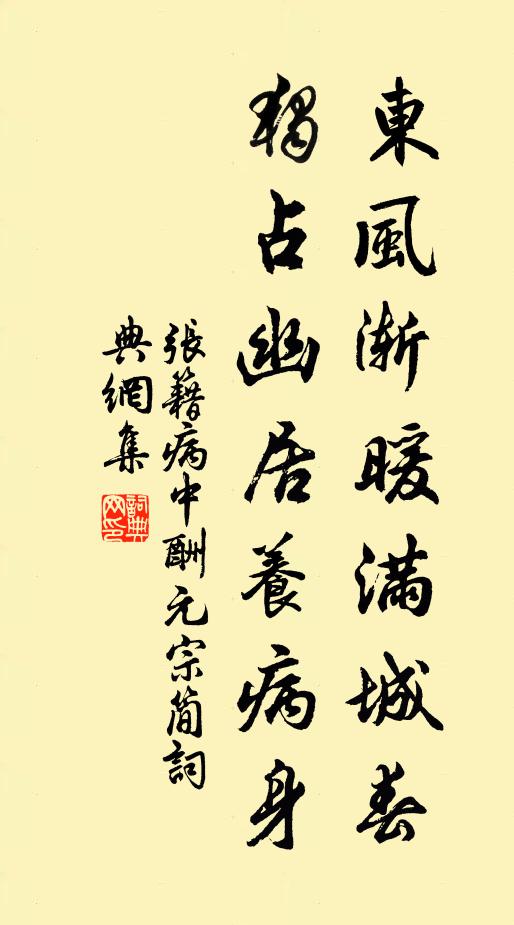 東風漸暖滿城春
獨占幽居養病身
張籍病中酬元宗簡詞
典網集
詞典网印